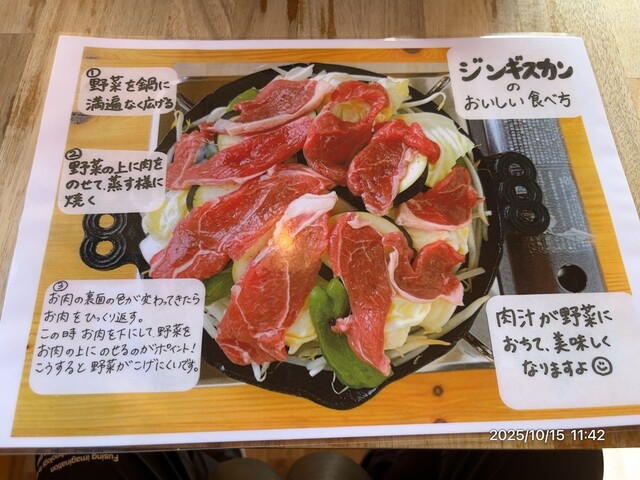 ジンギスカン
の
おいしい食べ方
①
野菜を鍋に
満遍なく広げる
②
野菜の上に肉を
のせて、蒸す様に
焼く
③
お肉の裏面の色が変わってきたら
お肉をひっくり返す。
この時お肉を下にして、野菜を
お肉の上にのせるのがポイント!
こうすると野菜がこげにくいです。
肉汁が野菜に
おちて、美味しく
なりますよ☺
Fusing imagination
2025/10/15 11:42